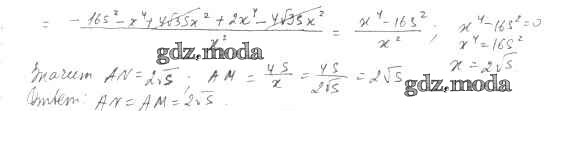 = \frac{-16S^2 - x^4 + 4\sqrt{35}x^2 + 2x^4 - 4\sqrt{35}x^2}{x^2} = \frac{x^4 - 16S^2}{x^2}; x^4 - 16S^2 = 0
x^4 = 16S^2
x = 2\sqrt{S}
gdz.moda
Значит AN = 2\sqrt{S}; AM = \frac{4S}{x} = \frac{4S}{2\sqrt{S}} = 2\sqrt{S}
gdz.moda
Ответ: AN = AM = 2\sqrt{S}.